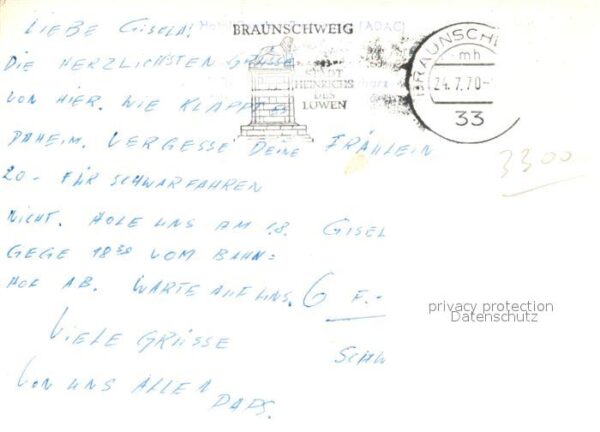 LIEBE GISELA!
(ADAC)
BRAUNSCHWEIG
STADT
HEINRICHS
DES
LÖWEN
BRAUNSCHW
mh
24.7.70-
33
DIE HERZLICHSTEN GRÜSSE
VON HIER. WIE KLAPPT ES
DAHEIM. VERGESSE DEINE
20.- FÜR SCHWARFAHREN
3300
NICHT. HOLE UNS AM 1.8. GISEL
GEGE 18 30 VOM BAHN=
HOF AB. WARTE AUF UNS. 6 F.-
privacy protection
Datenschutz
VIELE GRÜSSE SCHW
VON UNS ALLEN
PAPS.